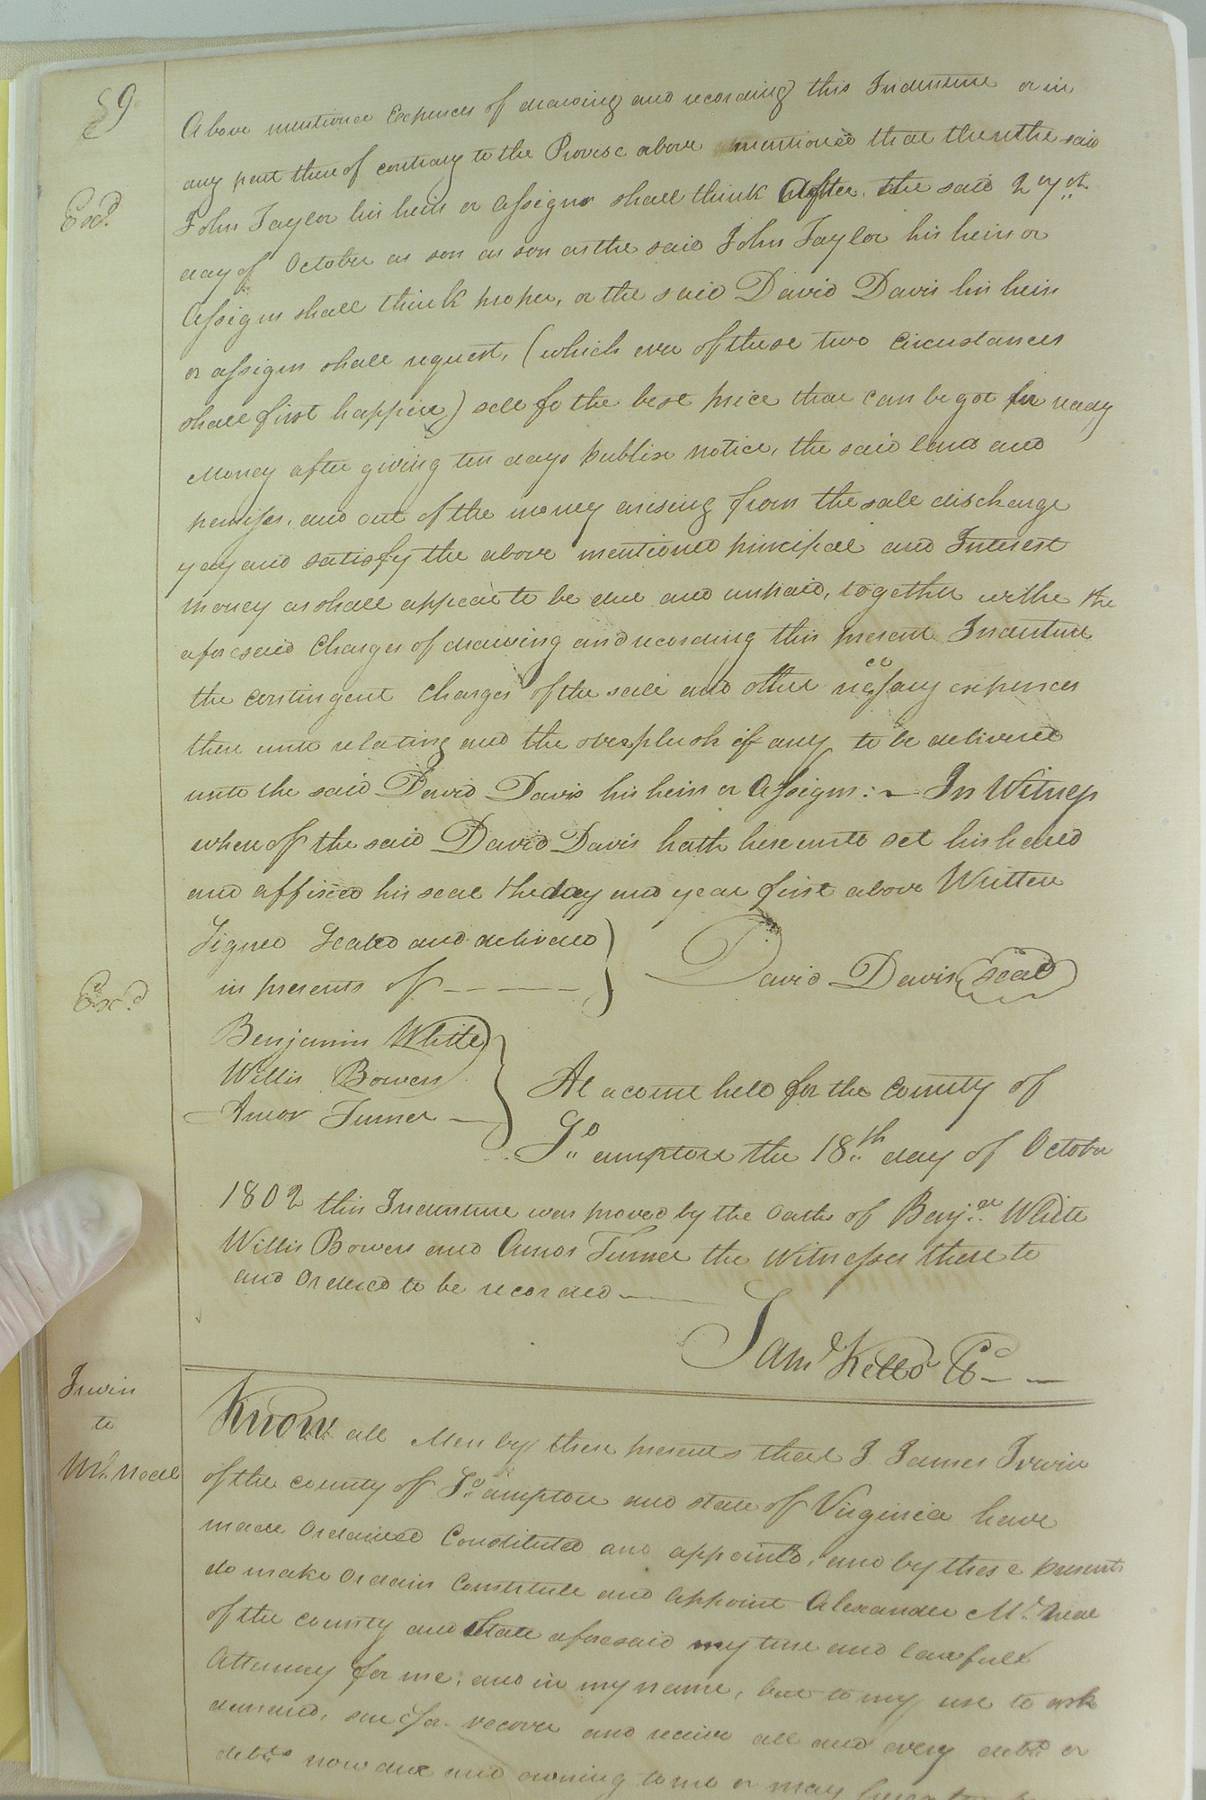 59
Above mentioned Expences of drawing and recording this Indenture or in
Exd.
any part there of contrary to the Proviso above mentioned that then the said
John Taylor his heirs or Assigns shall think After the said
day of October as son as son as the said John Taylor his heirs or
Assigns shall think proper, or the said David Davis his heirs
or assigns shall request, (which ever of these two Circustances
shall first happen) sell fo the best price that can be got for ready
Money after giving ten days publix notice, the said land and
premises, and out of the money arising from the sale discharge
pay and satisfy the above mentioned principal and Interest
money as shall appear to be due and unpaid, together withe the
aforesaid Charges of drawing and recording this present Indenture
the contingent Charges of the sale and other necessary expences
there unto relating and the overplush if any to be delivered
unto the said David Davis his heirs or Assigns: - In Witness
whereof the said David Davis hath here unto set his hand
and affixed his seal the day and year first above Written
Signed Sealed and delivered )
David Davis (seal)
in presents of - - - - )
Exd.
Benjamin White
Willis Bowers
Amos Turner
At a court held for the County of
So.ampton the 18th day of October
1802 this Indenture was proved by the oaths of Benj.n White
Willis Bowers and Amos Turner the Witnesses there to
and Ordered to be recorded
Saml Kello Cc
Irwin
to
McNeal
Know all Men by these presents that I James Irwin
of the county of So.ampton and state of Virginia have
made Ordained Constituted and appointed, and by these presents
do make Ordain Constitute and Appoint Alexander Mc.Neal
of the county and State aforesaid my true and lawfull
Attorney for me, and in my name, but to my use to ask
demand, sue for recover and receive all and every debts or
debts now due and owning to me or may